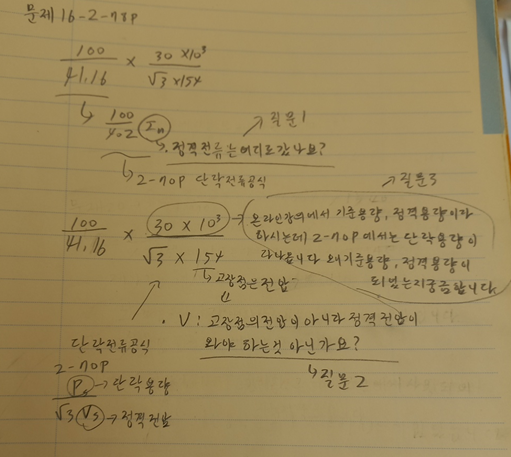 문제 16-2-78P
100/41.16 × 30 ×10³/√3 ×154
↳ 100/%Z In
→ 정격전류는 어디로 갔나요? → 질문1
↳ 2-70P 단락전류공식
→ 질문3
100/41.16 × 30 × 10³/√3 × 154 → 온라인강의에서 기준용량, 정격용량이라
하시는데 2-70P에서는 단락용량이
라나옵니다 왜 기준용량, 정격용량이
되었는지 궁금합니다.
↳ 고장점은 전압
· V : 고장점의 전압이 아니라 정격전압이
와야 하는것 아닌가요?
↳ 질문2
단락전류공식
2-70P
Ps → 단락용량
√3 Vs → 정격전압